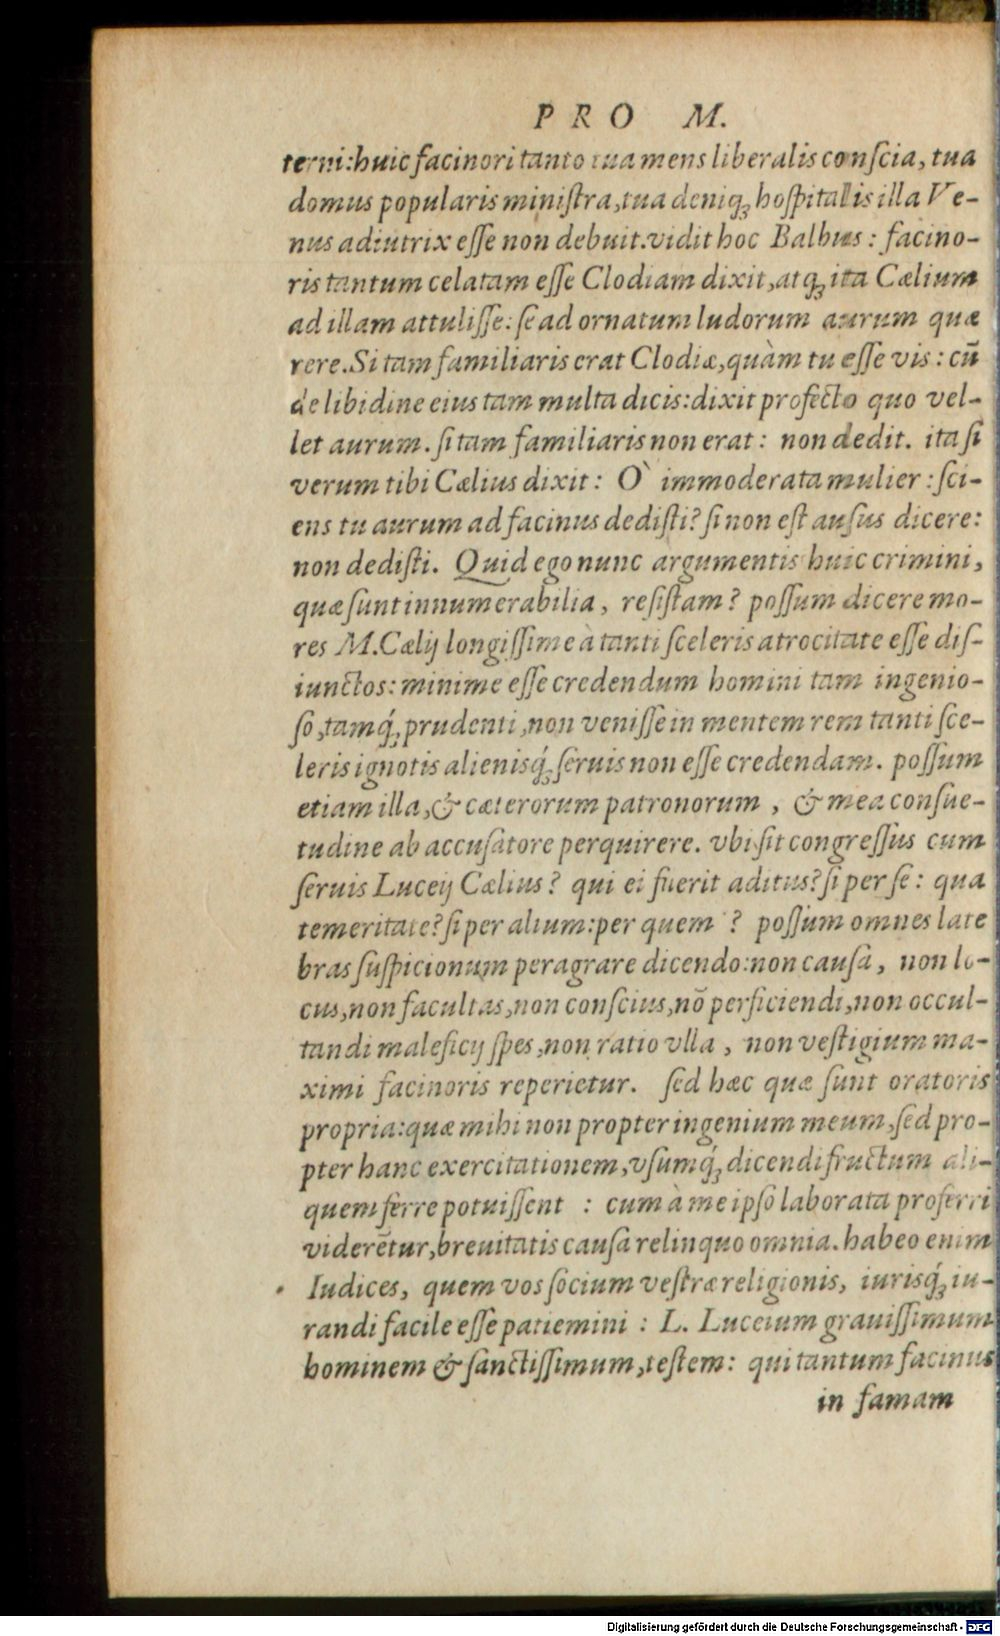 PRO M.
terni:huic facinori tanto tua mens liberalis conſcia, tua
domus popularis miniſtra,tua deniqꝫ hoſpitalis illa Ve-
nus adiutrix eſſe non debuit.vidit hoc Balbus: facino-
ris tantum celatam eſſe Clodiam dixit,atqꝫ ita Cælium
ad illam attuliſſe: ſe ad ornatum ludorum aurum quæ
rere.Si tam familiaris erat Clodiæ,quàm tu eſſe vis: cū
de libidine eius tam multa dicis:dixit profecto quo vel-
let aurum. ſi tam familiaris non erat: non dedit. ita ſi
verum tibi Cælius dixit: Ò immoderata mulier: ſci-
ens tu aurum ad facinus dediſti? ſi non eſt auſus dicere:
non dediſti. Quid ego nunc argumentis huic crimini,
quæ ſunt innumerabilia, reſiſtam? poſſum dicere mo-
res M.Cælij longiſſime à tanti ſceleris atrocitate eſſe diſ-
iunctos: minime eſſe credendum homini tam ingenio-
ſo,tamq́ꝫ prudenti,non veniſſe in mentem rem tanti ſce-
leris ignotis alienisq́ꝫ ſeruis non eſſe credendam. poſſum
etiam illa,& cæterorum patronorum, & mea conſue-
tudine ab accuſatore perquirere. vbi ſit congreſſus cum
ſeruis Luceij Cælius? qui ei fuerit aditus? ſi per ſe: qua
temeritate? ſi per alium:per quem? poſſum omnes late
bras ſuſpicionum peragrare dicendo:non cauſa, non lo-
cus,non facultas,non conſcius,nō perficiendi,non occul-
tandi maleficij ſpes,non ratio vlla, non veſtigium ma-
ximi facinoris reperietur. ſed hæc quæ ſunt oratoris
propria:quæ mihi non propter ingenium meum,ſed pro-
pter hanc exercitationem,vſumq́ꝫ dicendi fructum ali-
quem ferre potuiſſent : cum à me ipſo laborata proferri
viderētur,breuitatis cauſa relinquo omnia. habeo enim
Iudices, quem vos ſocium veſtræ religionis, iurisq́ꝫ iu-
randi facile eſſe patiemini: L. Luceium grauiſſimum
hominem & ſanctiſſimum,teſtem: qui tantum facinus
in famam
Digitalisierung gefördert durch die Deutsche Forschungsgemeinschaft - DFG